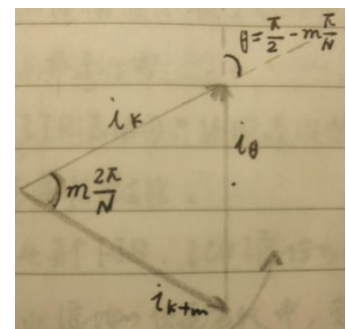 θ = π/2 - m π/N
i_k
i_θ
m 2π/N
i_{k+m}